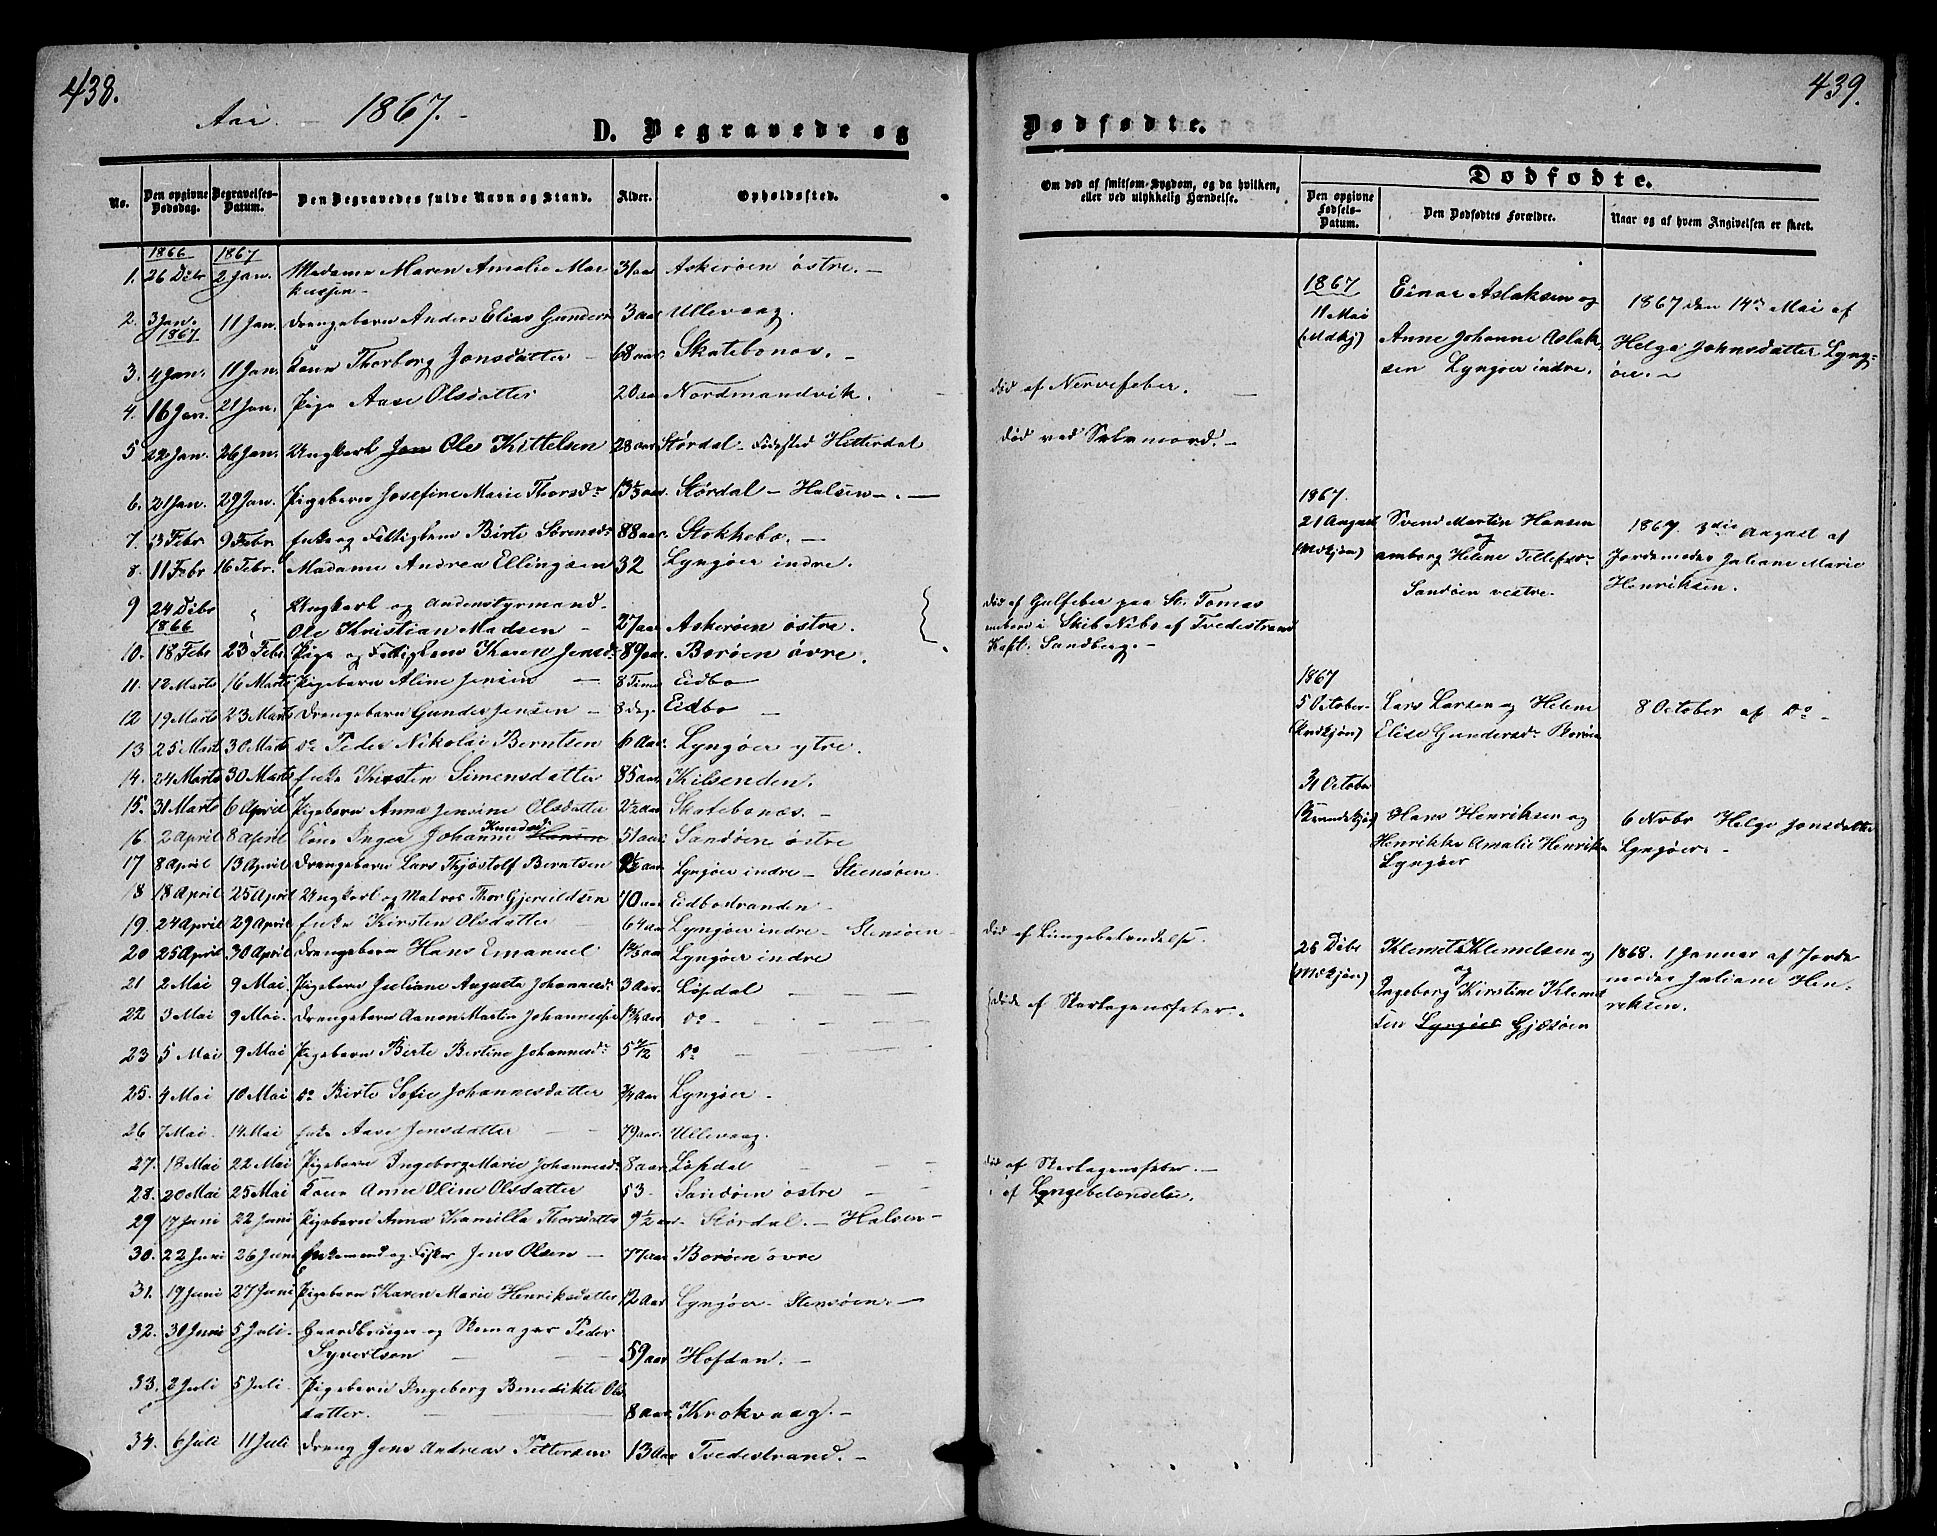 438.
Aar. – 1867. –
D. Begravede og
No.
Den opgivne Dødsdag.
Begravelses-Datum.
Den Begravedes fulde Navn og Stand.
Alder.
Opholdssted.
1866 1867
1. 26 Debr 2 Jan. Madame Maren Amalie Mar 31 aar Askerøen østre. –
kussen –
2. 3 Jan. 11 Jan. Drengebarn Anders Elias Gunders 3 aar Ullevaag.
1867
3. 4 Jan. 11 Jan. Kone Thorborg Jonsdatter – 68 aar. Skatebonæs. –
4. 16 Jan. 21 Jan. Pige Aase Olsdatter 20 aar Nordmandvik.
5 22 Jan. 26 Jan. Ungkarl Jan Ole Kittelsen 28 aar Størdal – Fødested Hitterdal
6. 21 Jan. 29 Jan. Pigebarn Josefine Marie Thorsdr 13⅓ aar. Størdal – Halsen –
7. 3 Febr 9 Febr Enke og Fattiglem Birte Sørensdr 88 aar. Stokkebo. –
8. 11 Febr 16 Febr. Madame Andrea Ellingsen 32 Lyngøer indre.
9 24 Debr " Ungkarl og Andenstyrmand –
1866 Ole Kristian Madsen – 27 aar Askerøen østre.
10. 18 Febr 23 Febr. Pige og Fattiglem Karen Jensdr 89 aar. Borøen øvre.
11. 12 Marts 16 Marts Pigebarn Aline Jensen – 8 Timer Eidbo
12 19 Marts 23 Marts Drengebarn Gunder Jensen – 8 Dage Eidbo –
13 25 Marts 30 Marts Do Peder Nikolai Berntsen 6 Aar. Lyngøer ytre.
14. 24 Marts 30 Marts Enke Kirsten Simensdatter 85 aar. Kilsenden.
15. 31 Marts 6 April Pigebarn Anna Jensine Olsdatter 2½ aar Skatebonæs. –
16 2 April 8 April Kone Inger Johanne Knudsdr Hansen 51 aar. Sandøen østre
17 8 April 13 April Drengebarn Lars Thjostolf Berntsen aar. Lyngøer indre – Steensøen.
18 18 April 25 April Ungkarl og Matros Thor Gjeruldsen 40 aar Eidbostranden –
19. 24 April 29 April Enke Kirsten Olsdatter – 64 aar Lyngøer indre – Stensøen –
20 25 April 30 April Drengebarn Hans Emanuel aar Lyngøer indre
21 2 Mai 9 Mai Pigebarn Juliane Augusta Johannesdr 3 Aar. Løpdal – – –
22 3 Mai 9 Mai. Drengebarn Aanon Martin Johannessen 1¾ aar Do – – – –
23 5 Mai 9 Mai Pigebarn Birte Bertine Johannesdr 5 7/12 Do – – –
25. 4 Mai 10 Mai Do Birte Sofie Johannesdatter ¾ aar Lyngøer –
26 7 Mai. 14 Mai Enke Aase Jensdatter – – 79 aar. Ullevaag.
27. 18 Mai 22 Mai Pigebarn Ingeborg Marie Johannesdr 8 aar. Løpdal – – –
28. 20 Mai 25 Mai Kone Anne Oline Olsdatter 53. Sandøen østre – –
29 17 Juni 22 Juni Pigebarn Anna Kamilla Thorsdatter 9½ aar – Størdal. – Halsen –
30. 22 Juni 26 Juni Enkemand og Fisker Jens Olsen – 77 aar Borøen øvre
31. 19 Juni 27 Juni Pigebarn Karen Marie Henriksdatter 12 Aar Lyngøer – Stensøen. –
32. 30 Juni 5 Juli. Gaardbruger og Skomager Peder
Syvertsen – – 59 aar Hofdan. –
33. 2 Juli 5 Juli. Pigebarn Ingeborg Benedikte Ols
datter. – – 8 aar. Krokvaag. –
34. 6 Juli 11 Juli Dreng Jens Andreas Pettersen 13 Aar Tvedestrand. –
439.
Dødfødte.
Om død af smitsom Sygdom, og da hvilken,
eller ved ulykkelig Hændelse.
Dødfødte.
Den opgivne Fødsels-Datum.
Den Dødfødtes Forældre.
Naar og af hvem Angivelsen er skeet.
død af Nervefeber. –
død ved Selvmord. –
død af Gulfeber paa St. Tomas
ombord i Skib Nebo af Tvedestrand
Kapt. Sandberg. –
død af Lungebetændelse.
døde af Skarlagensfeber.
død af Skarlagensfeber. –
" af Lungebetændelse.
1867
11 Mai Einar Aslaksen og 1867 den 14de Mai af
(Mdkj) Anne Johanne Aslak- Helge Johnsdatter Lyng-
sen Lyngøer indre. øer. –
1867.
21 August Svend Martin Hansen 1867. 3die August af
(Mdkjøn) og Jordemoder Juliane Marie
Amborg Helene Tellefsdr Henriksen.
Sandøen vestre.
1867
5 October Lars Larsen og Helene 8 October af Do –
Elise Gundersdr Borøen
31 October
Hans Henriksen og 6 Novbr Helge Jonsdatter
Henrikke Amalie Henriks Lyngøer. –
Lyngøer
28 Debr Klemet Klemetsen og 1868. 1 Januar af Jorde
(Mdkjøn) og moder Juliane Hen-
Ingeborg Kirstine Klemet riksen.
sen Lyngøer Gjæsøen